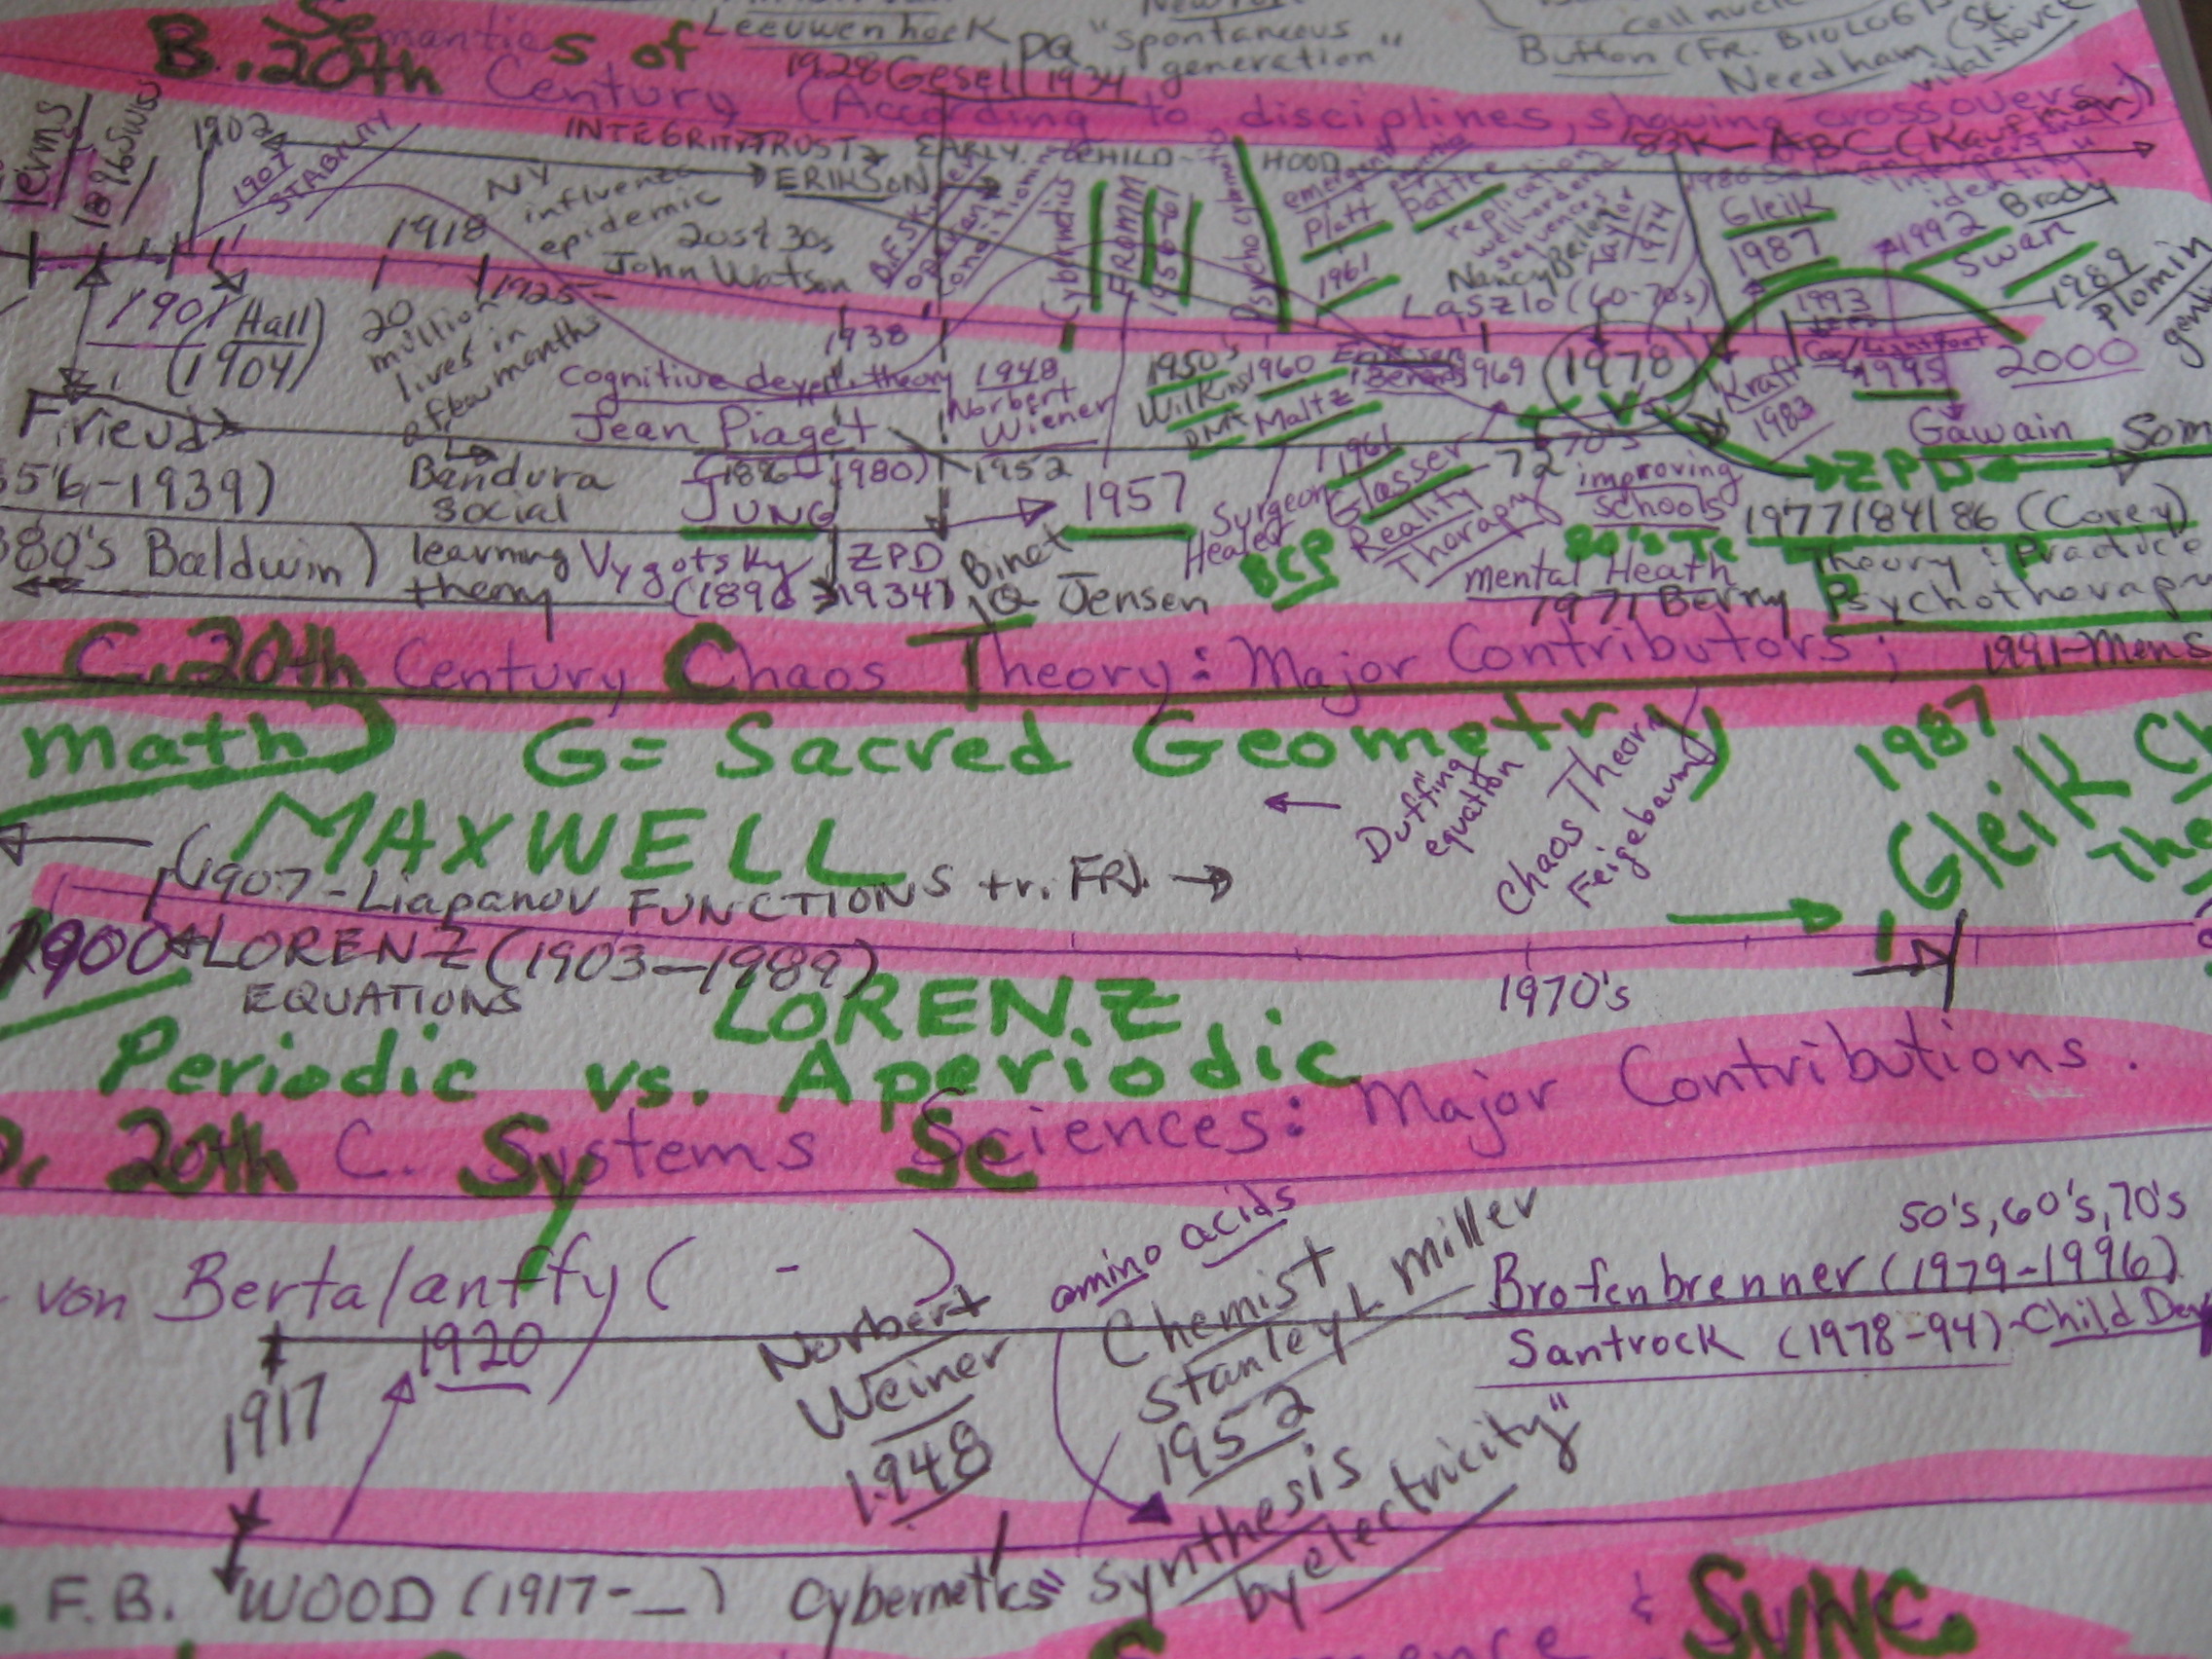 Leeuwenhoek
"spontaneous generation"
cell nucle
Button (FR. BIOLOGIS
Needham (St.
vital-force
B. Semantics of
20th Century (According to disciplines, showing crossovers)
1928 Gesell 1934
PQ
terms
1896 Swiss
1902
1907
STABILITY
INTEGRITY
TRUST
EARLY CHILD-HOOD
83 K-ABC (Kaufman)
ERIKSON
NY
influenza
epidemic
1918
1925-
20s & 30s
John Watson
B.F. Skinner
operant
conditioning
Cybernetics
FROMM
1956-67
Psycho Cyb
emergent
Platt
1961
Pattee
replication
well-ordered
sequences
Nancy Bailey
Taylor
1974
Laszlo (60-70s)
1986
Gleik
1987
"interpersonal
identity"
1992
Brady
Swan
1989
Plomin
1993
1995
2000
1901
Hall
(1904)
20
million
lives in
a few months
1938
Cognitive devel. theory
Jean Piaget
(1896-1980)
1948
Norbert
Wiener
1952
1950's
Wilkins
DNA
1960
Maltz
1969
1978
Kraft
1983
Gawain
Som
Frieud
56-1939)
Bandura
social
learning
theory
JUNG
1957
1961
Surgeon
Healed
Glasser
Reality
Therapy
72
70's
improving
schools
ZPD
1977/84/86 (Corey)
Theory & Practice
Psychotherapy
80's Baldwin)
Vygotsky
(1896-1934)
ZPD
Binet
IQ
Jensen
BCP
80's Te
mental Heath
1971 Berny
C. 20th Century Chaos Theory: Major Contributors;
1991-Mens
math) G= Sacred Geometry)
MAXWELL
Duffing
equation
Chaos Theory
Feigebaum
1987
Gleik Ch
The
(1907-Liapanov FUNCTIONS tr. FR).
1900
LORENZ (1903-1989)
EQUATIONS
LORENZ
1970's
Periodic vs. Aperiodic
D. 20th C. Systems Sciences: Major Contributions.
von Bertalanffy ( - )
1920
1917
Norbert
Weiner
1948
amino acids
Chemist
Stanley L. Miller
1952
50's, 60's, 70's
Brofenbrenner (1979-1996)
Santrock (1978-94)-Child Dev
F.B. WOOD (1917-_)
Cybernetics
"Synthesis
by electricity"
& SYNC.